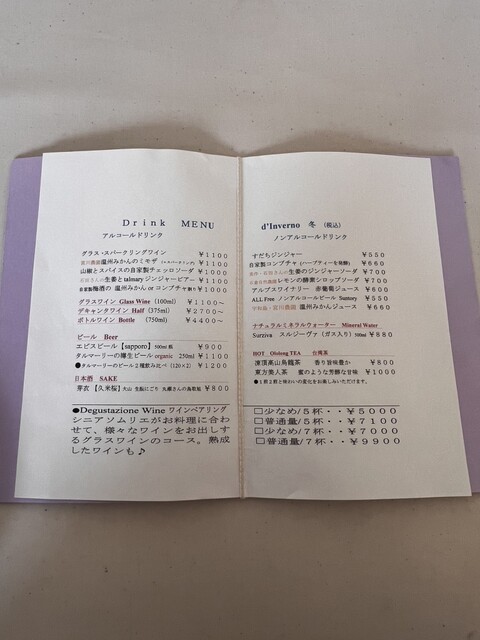 Drink MENU
アルコールドリンク
グラス・スパークリングワイン ¥1100
温州みかんのミモザ ¥1100
山椒とスパイスの自家製チェッロソーダ ¥1000
生姜とtalmaryジンジャービアー ¥1100
自家製梅酒の 温州みかん or コンブチャ割り ¥1000
グラスワイン Glass Wine (100ml) ¥1100～
デキャンタワイン Half (375ml) ¥2700～
ボトルワイン Bottle (750ml) ¥4400～
ビール Beer
エビスビール【sapporo】500ml 瓶 ¥900
タルマーリーの樽生ビール organic 250ml ¥1100
●タルマーリーのビール2種飲み比べ (120×2) ¥1200
日本酒 SAKE
芽衣【久米桜】大山 生酛にごり 丸瀬さんの鳥取城 ¥800
●Degustazione Wine ワインペアリング
シニアソムリエがお料理に合わ
せて、様々なワインをお出しす
るグラスワインのコース。熟成
したワインも♪
d'Inverno 冬 (税込)
ノンアルコールドリンク
すだちジンジャー ¥550
自家製コンブチャ (ハーブティーを発酵) ¥660
生姜のジンジャーソーダ ¥700
レモンの酵素シロップソーダ ¥700
アルプスワイナリー 赤葡萄ジュース ¥600
ALL Free ノンアルコールビール Suntory ¥550
温州みかんジュース ¥660
ナチュラルミネラルウォーター Mineral Water
Surziva スルジーヴァ (ガス入り) 500ml ¥880
HOT Oolong TEA 台湾茶
凍頂高山烏龍茶 香り旨味豊か ¥800
東方美人茶 蜜のような芳醇な甘味 ¥1000
●1煎2煎と味わいの変化をお楽しみいただけます。
□少なめ/5杯・・¥5000
□普通量/5杯・・¥7100
□少なめ/7杯・・¥7000
□普通量/7杯・・¥9900